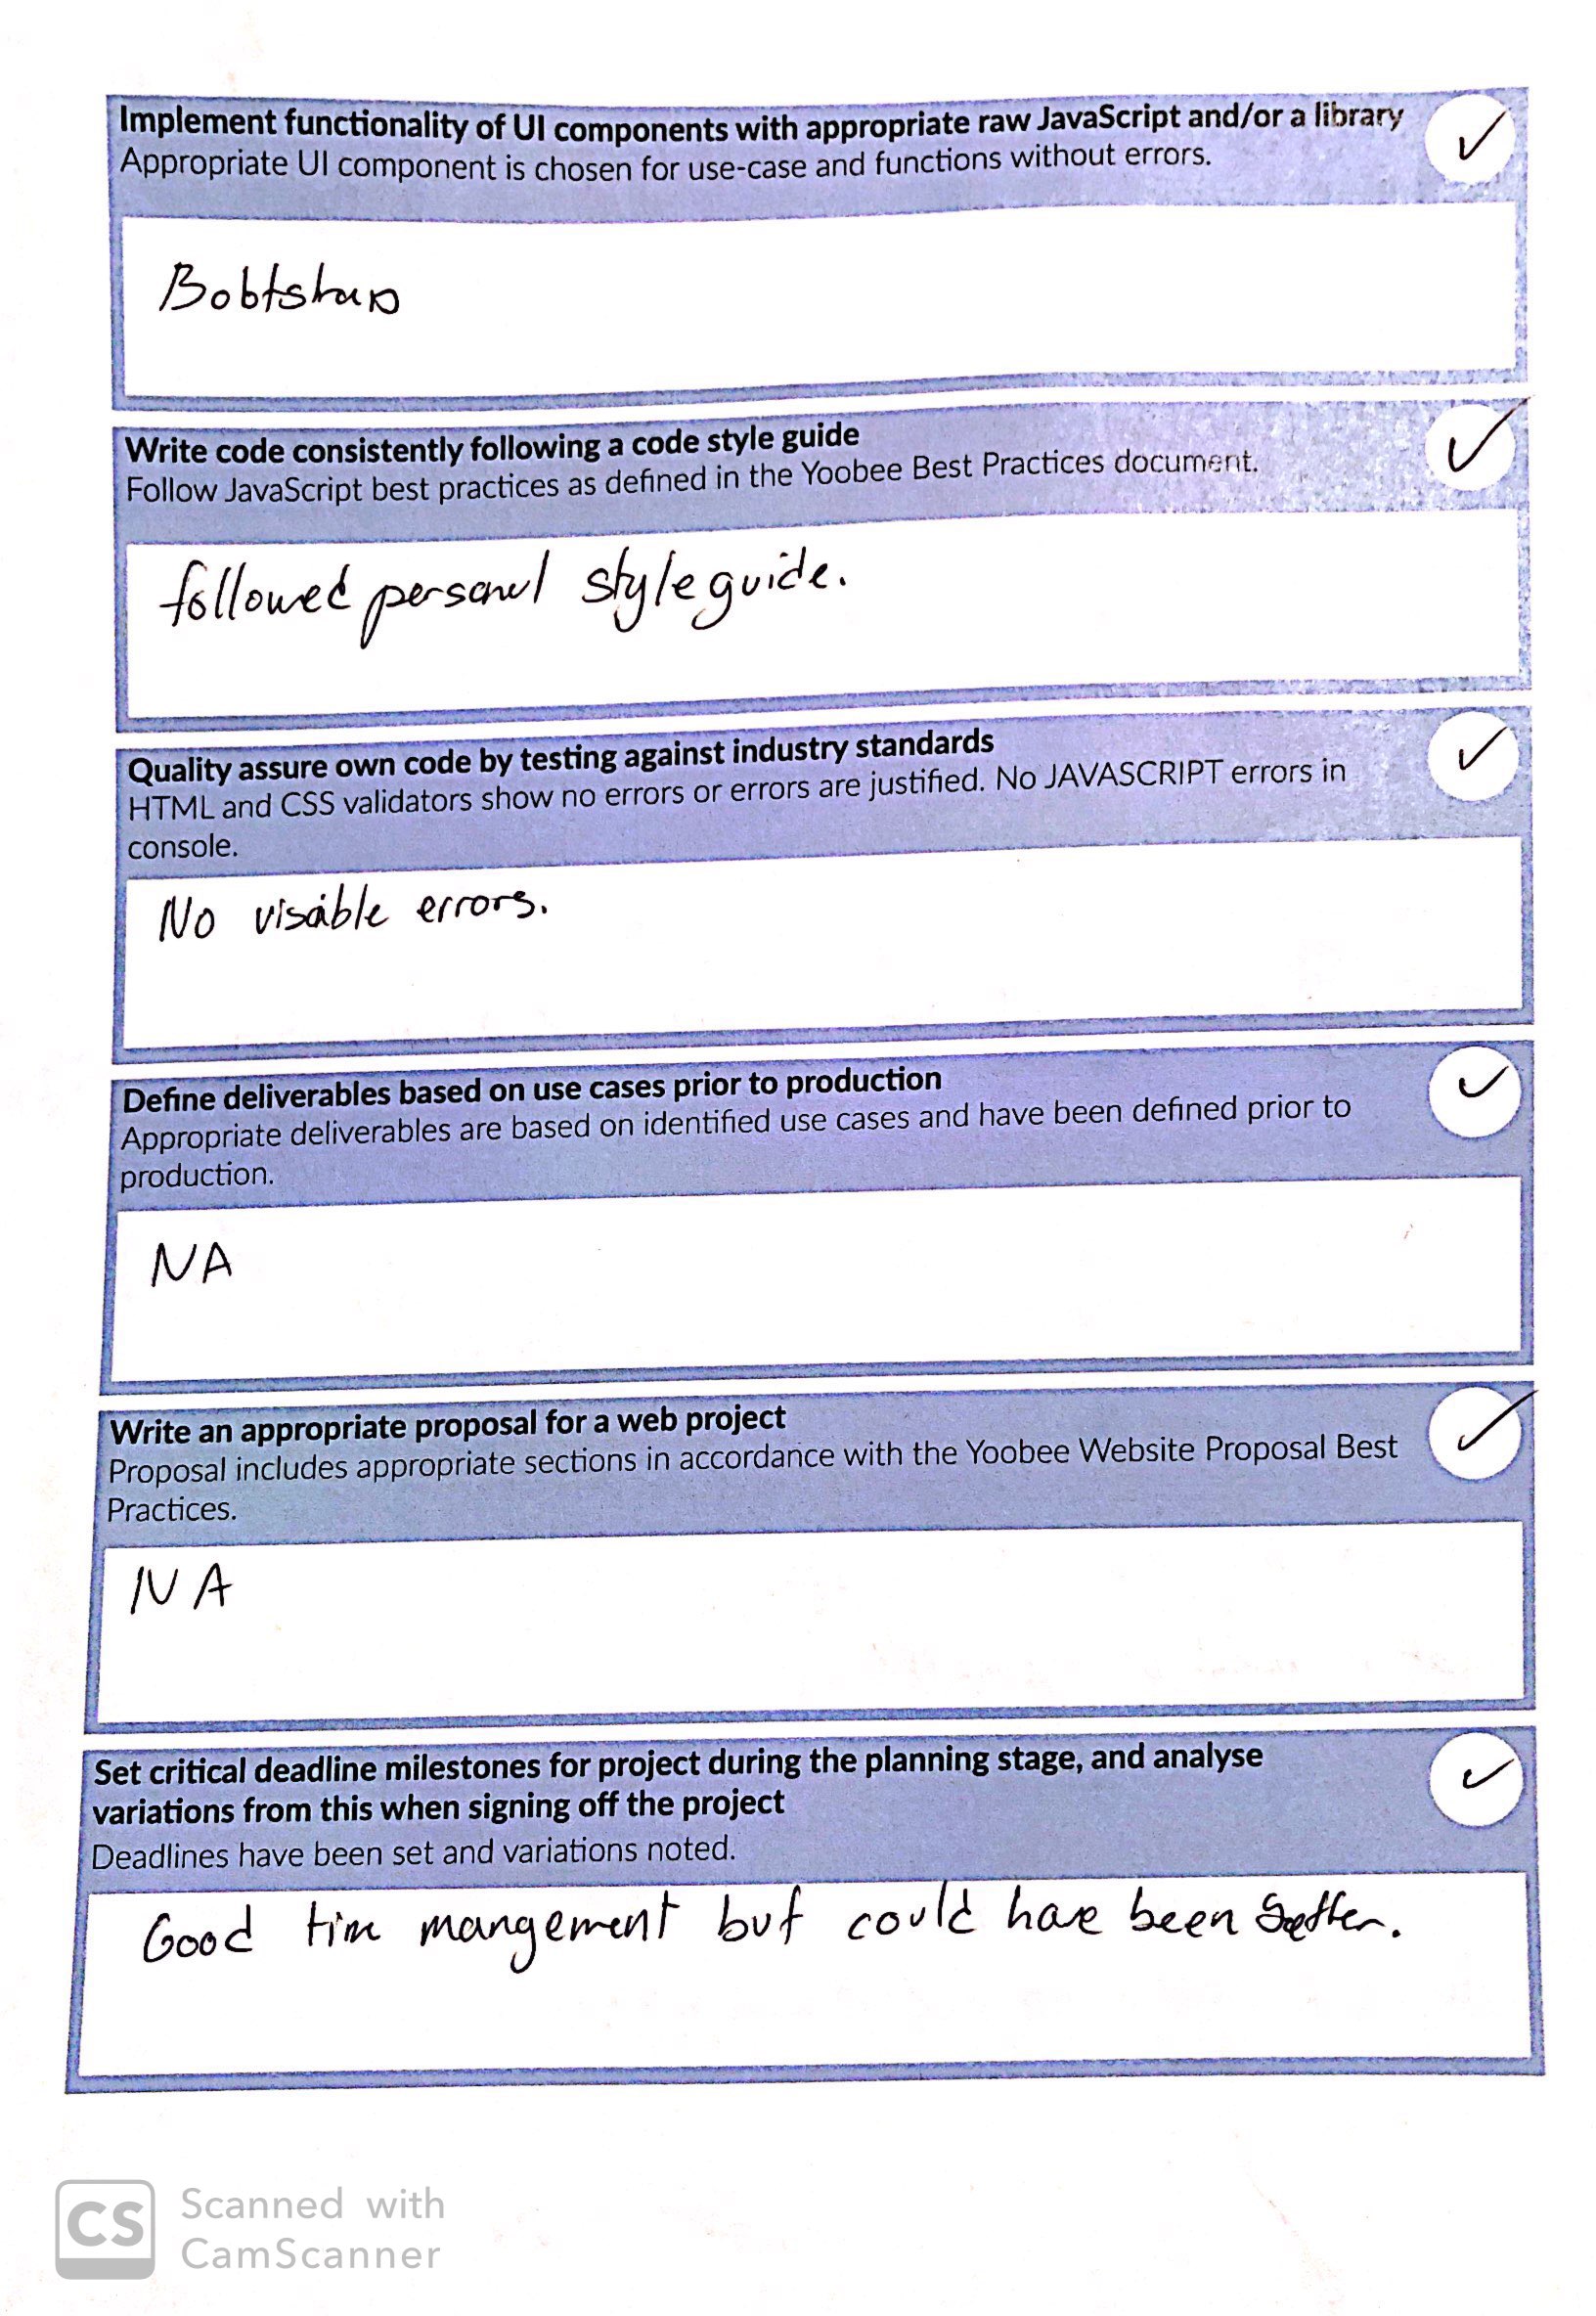 Implement functionality of UI components with appropriate raw JavaScript and/or a library
Appropriate UI component is chosen for use-case and functions without errors.
Bobtstrap
Write code consistently following a code style guide
Follow JavaScript best practices as defined in the Yoobee Best Practices document.
followed personal style guide.
Quality assure own code by testing against industry standards
HTML and CSS validators show no errors or errors are justified. No JAVASCRIPT errors in
console.
No visible errors.
Define deliverables based on use cases prior to production
Appropriate deliverables are based on identified use cases and have been defined prior to
production.
NA
Write an appropriate proposal for a web project
Proposal includes appropriate sections in accordance with the Yoobee Website Proposal Best
Practices.
NA
Set critical deadline milestones for project during the planning stage, and analyse
variations from this when signing off the project
Deadlines have been set and variations noted.
Good tim mangement but could have been better.
CS Scanned with
CamScanner